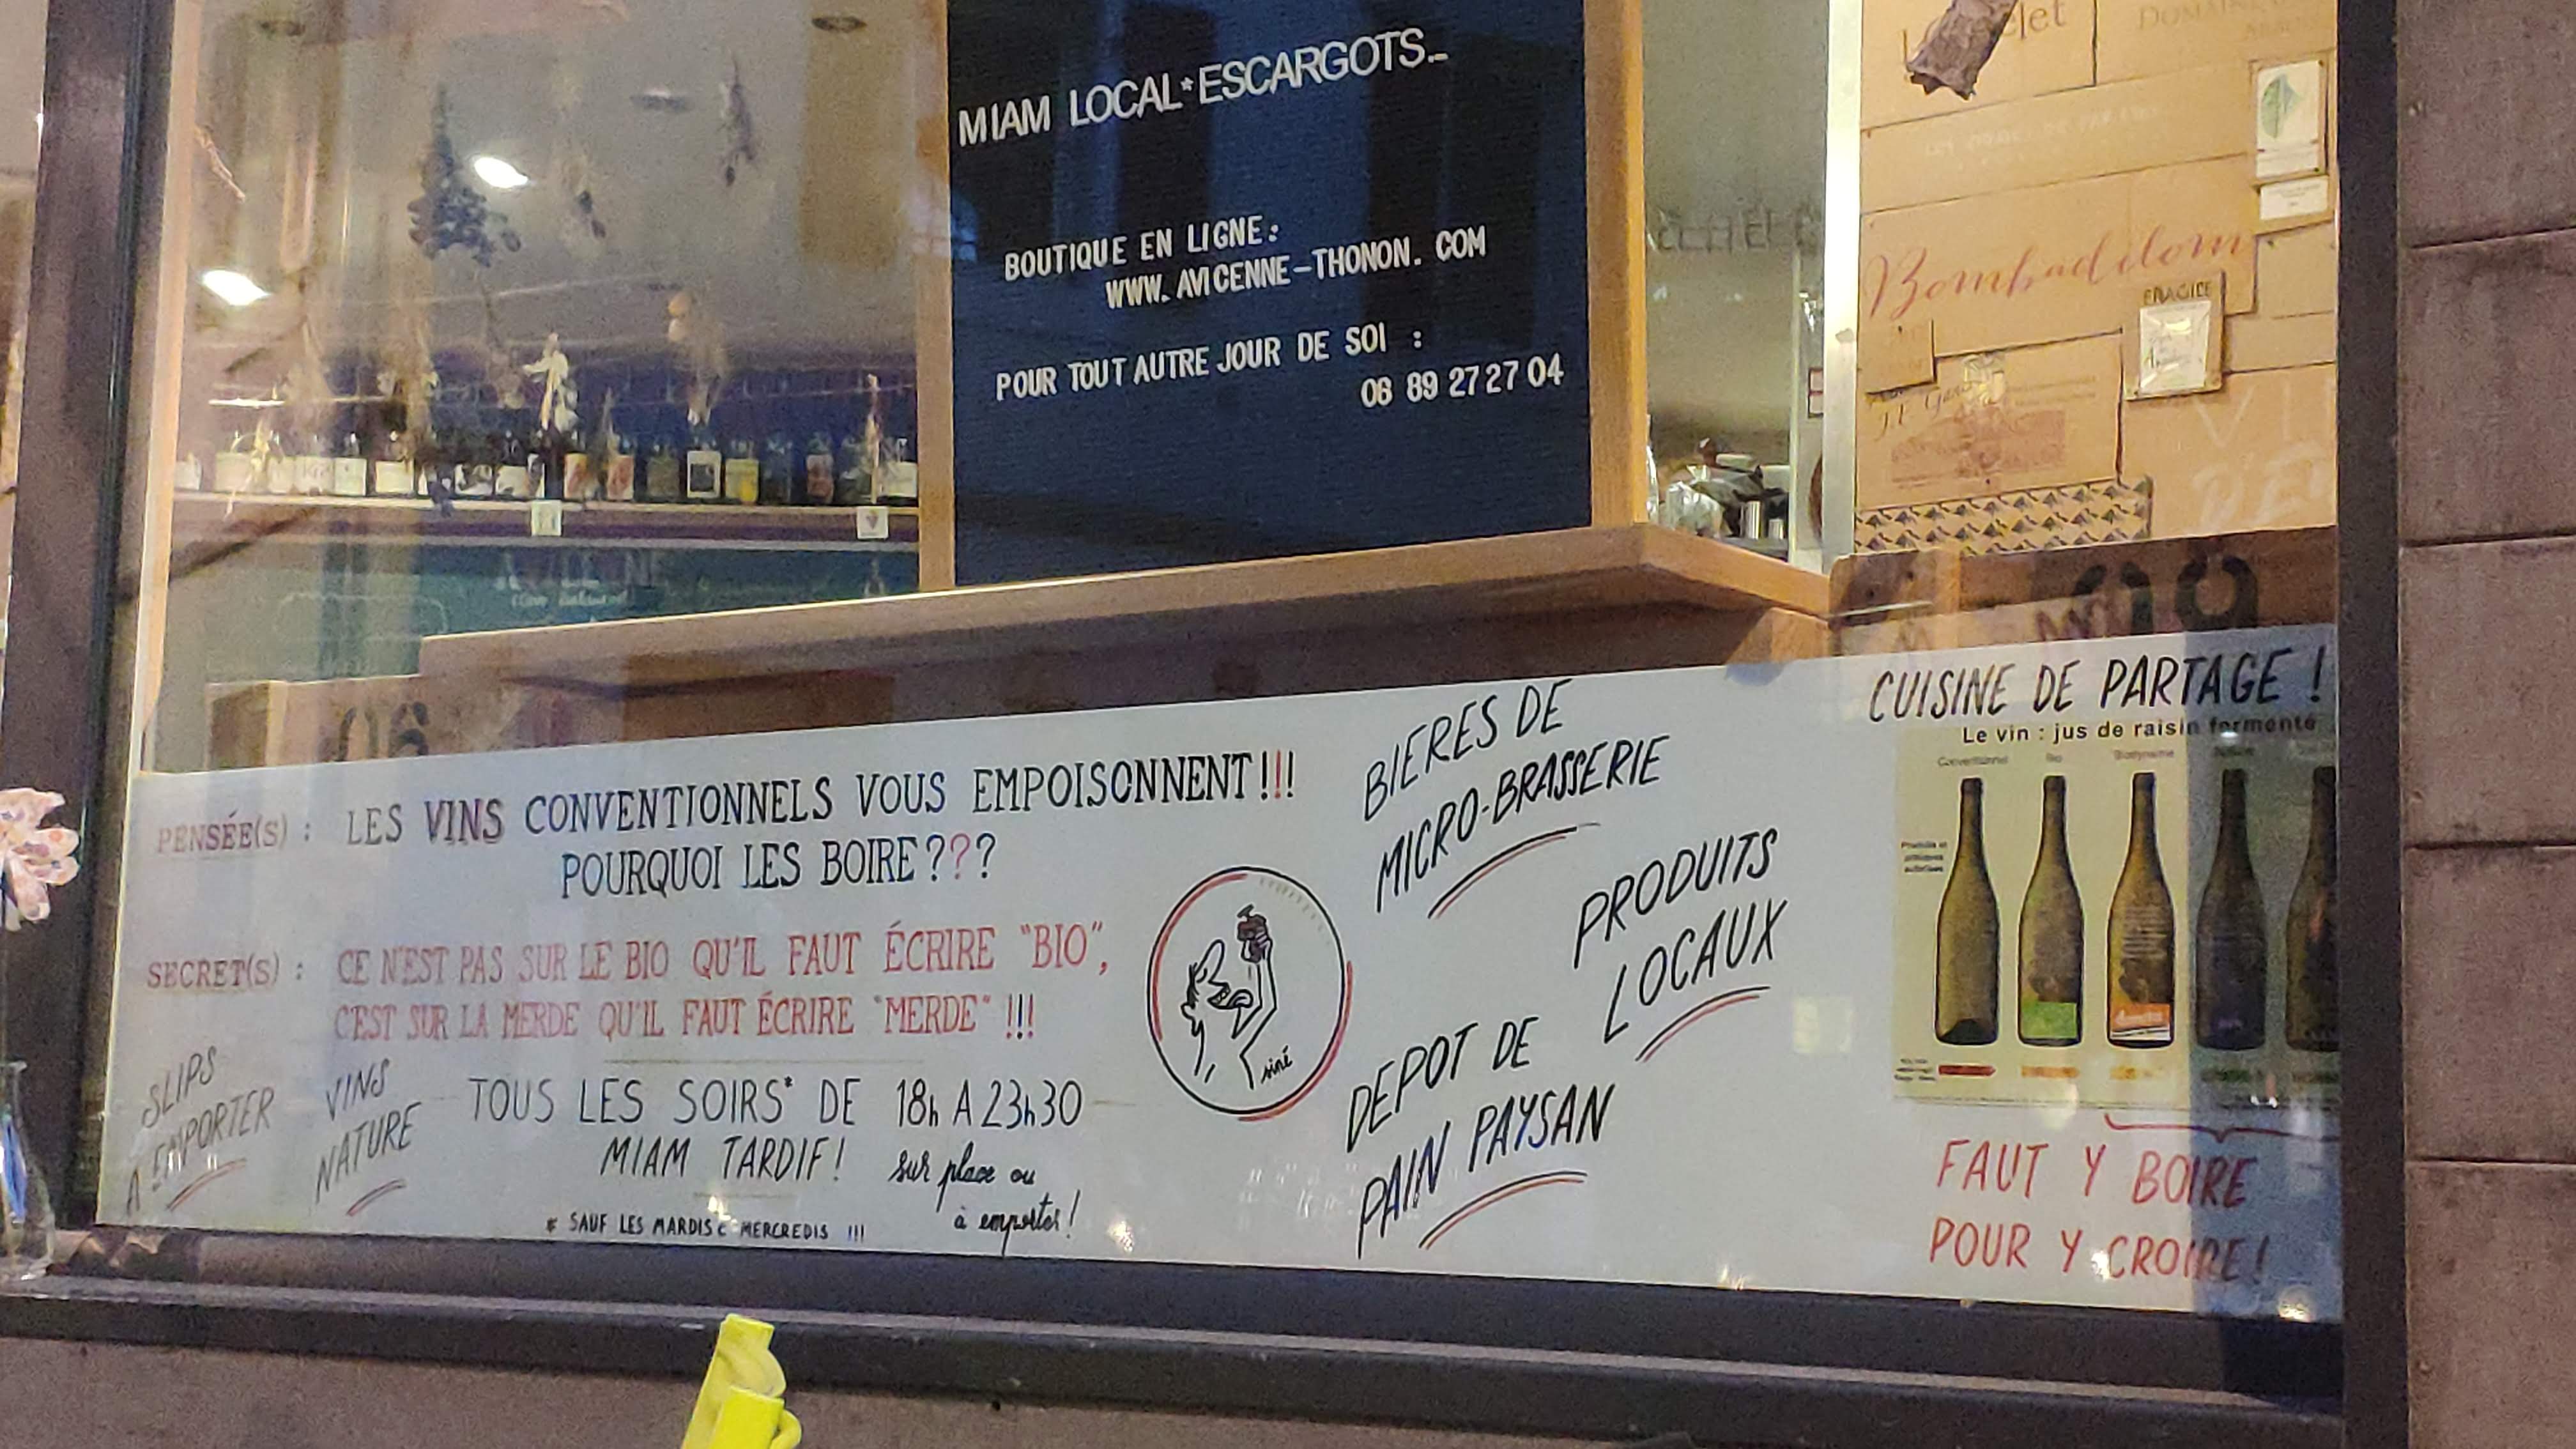 MIAM LOCAL*ESCARGOTS...
BOUTIQUE EN LIGNE:
WWW.AVICENNE-THONON.COM
POUR TOUT AUTRE JOUR DE SOI :
06 89 27 27 04
Bombadilom
FRAGILE
CUISINE DE PARTAGE !
Le vin : jus de raisin fermenté
Conventionnel Bio Biodynamie
PENSÉE(S) : LES VINS CONVENTIONNELS VOUS EMPOISONNENT!!!
POURQUOI LES BOIRE???
SECRET(S) : CE N'EST PAS SUR LE BIO QU'IL FAUT ÉCRIRE "BIO",
C'EST SUR LA MERDE QU'IL FAUT ÉCRIRE "MERDE" !!!
SLIPS
A EMPORTER
VINS
NATURE
TOUS LES SOIRS* DE 18h A 23h30
MIAM TARDIF! sur place ou
à emporter!
* SAUF LES MARDIS & MERCREDIS !!!
siné
BIERES DE
MICRO-BRASSERIE
PRODUITS
LOCAUX
DEPOT DE
PAIN PAYSAN
FAUT Y BOIRE
POUR Y CROIRE!